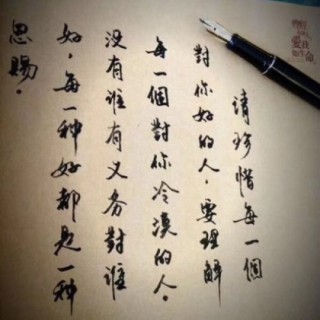 請珍惜每一個
對你好的人，要理解
每一個對你冷漠的人。
沒有谁有义务對谁
好，每一种好都是一种
恩赐。